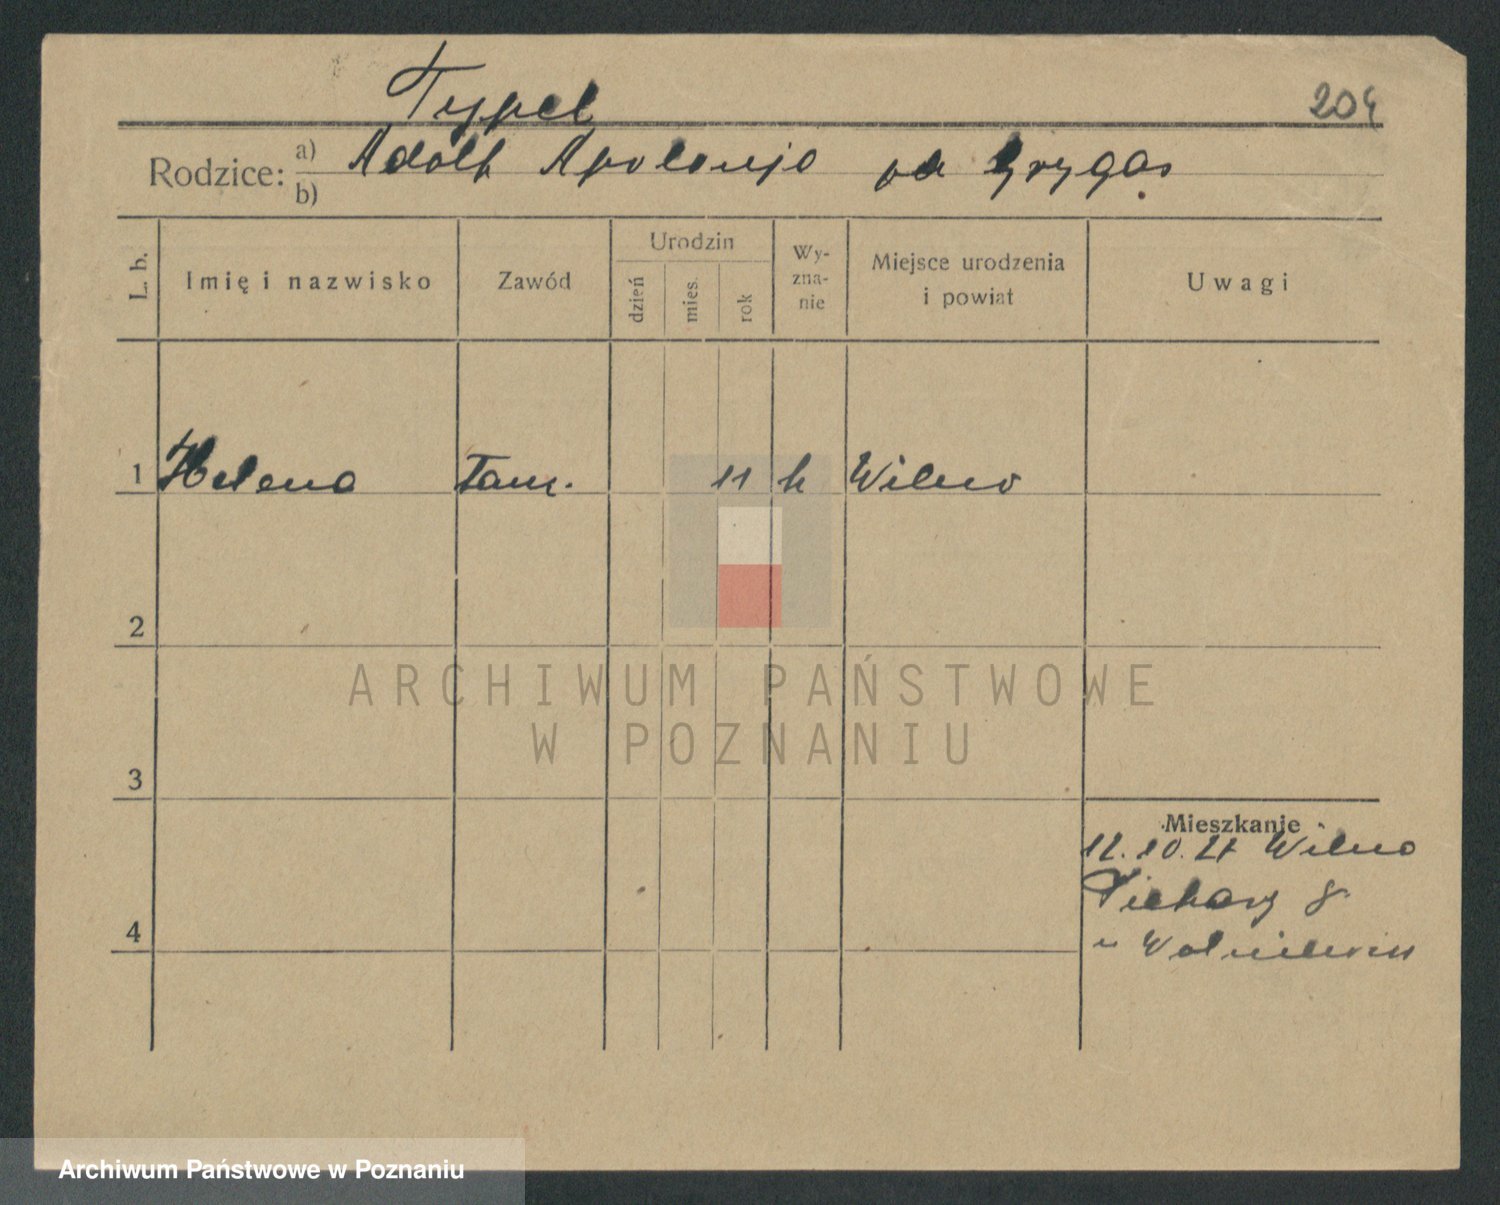 Typel
204
Rodzice: a) Adolf Apolonja od Grygas
b)
L. b. Imię i nazwisko Zawód Urodzin dzień mies. rok Wy-zna-nie Miejsce urodzenia i powiat Uwagi
1 Helena 11 Wilno
2
3
4
Mieszkanie
Wilno
Piekary 8
ARCHIWUM PAŃSTWOWE
W POZNANIU
Archiwum Państwowe w Poznaniu